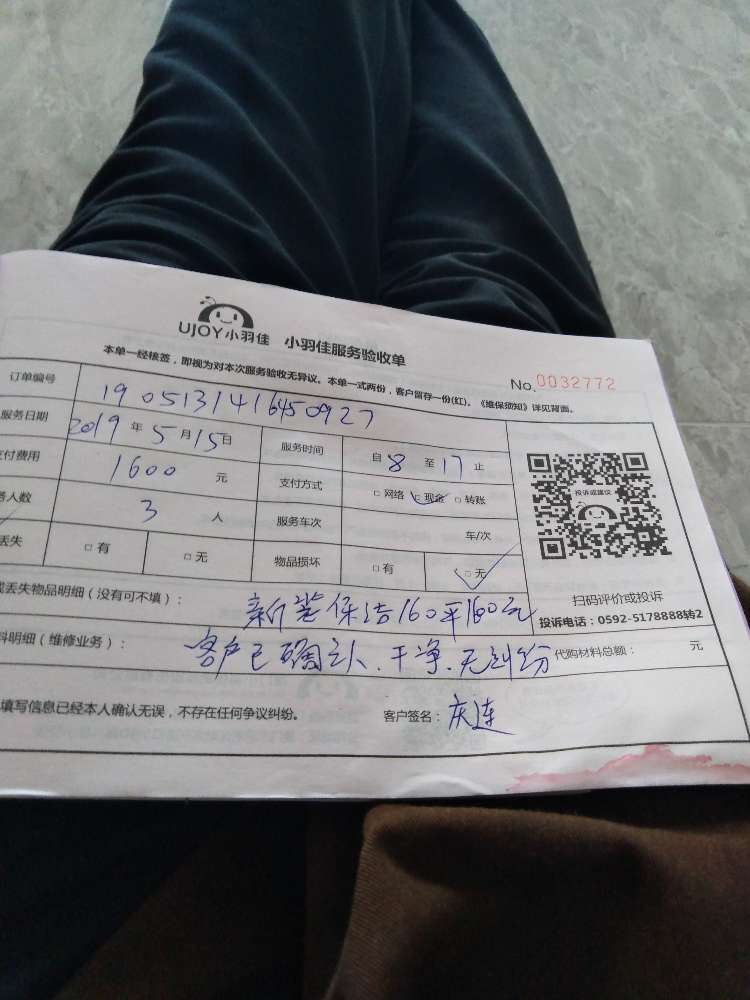 UJOY小羽佳 小羽佳服务验收单
本单一经核签，即视为对本次服务验收无异议。本单一式两份，客户留存一份(红)。《维保须知》详见背面。
No.0032772
订单编号 1905131416450927
服务日期 2019年5月15日 服务时间 自8至17止
付费用 1600元 支付方式 □网络 □现金 □转账
人数 3人 服务车次 车/次
丢失 □有 □无 物品损坏 □有 □无
投诉或建议
扫码评价或投诉
投诉电话：0592-5178888转2
丢失物品明细（没有可不填）： 新装保洁160平1600元
料明细（维修业务）： 客户已确认、干净、无纠纷 代购材料总额： 元
填写信息已经本人确认无误，不存在任何争议纠纷。 客户签名： 庆连